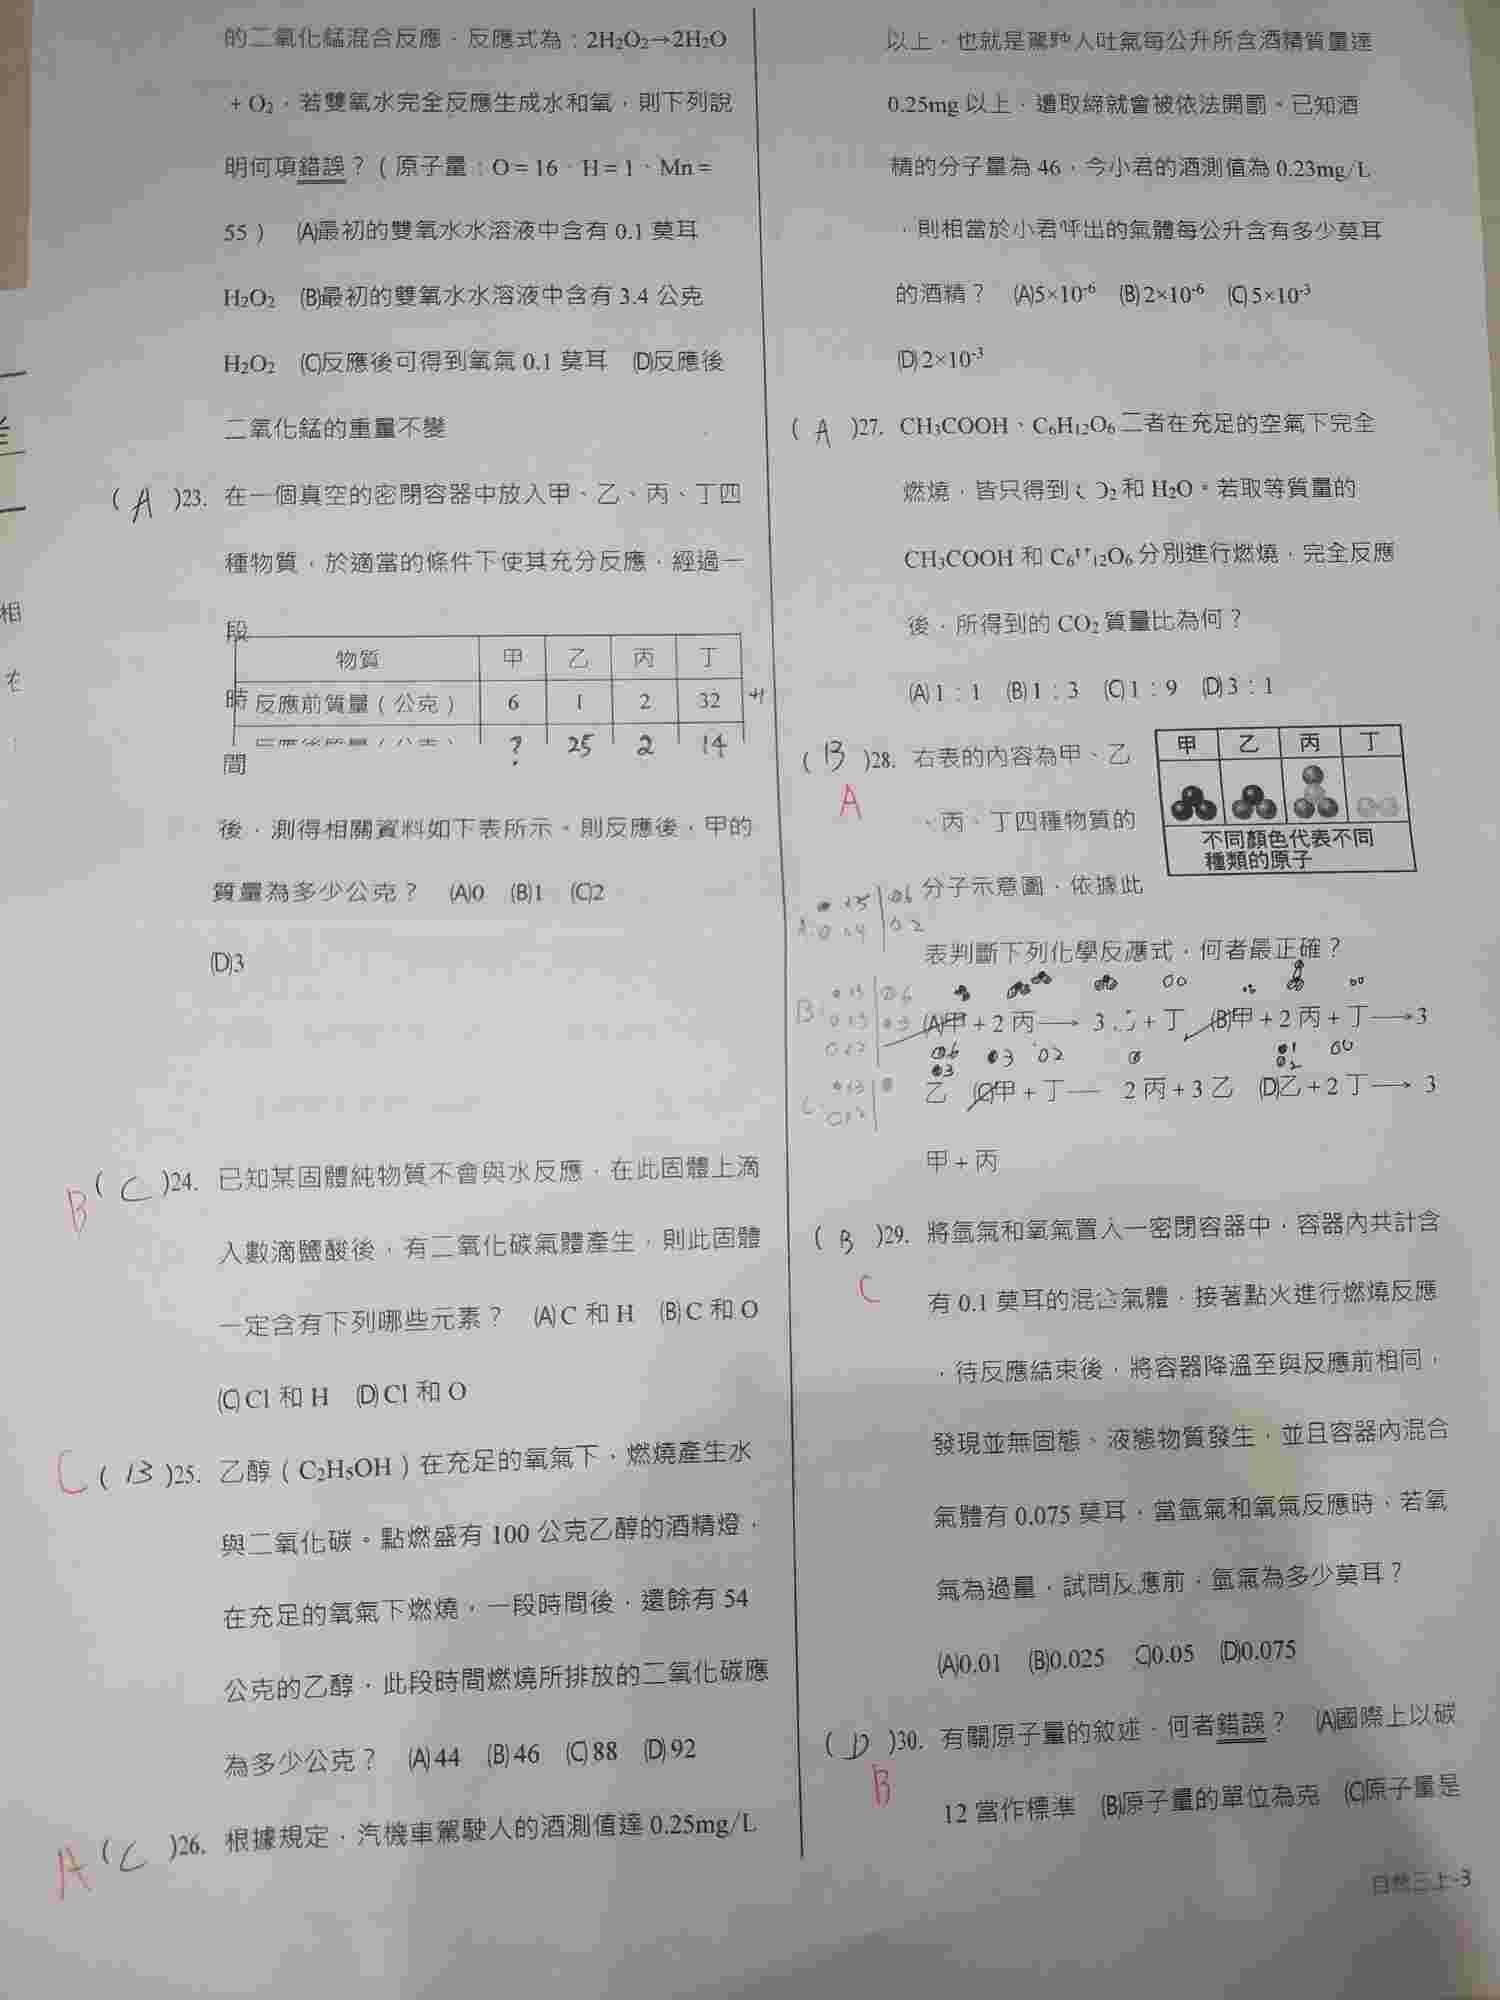 的二氧化錳混合反應，反應式為：2H₂O₂→2H₂O
+ O₂，若雙氧水完全反應生成水和氧，則下列說
明何項錯誤？（原子量：O＝16、H＝1、Mn＝
55） (A)最初的雙氧水水溶液中含有 0.1 莫耳
H₂O₂ (B)最初的雙氧水水溶液中含有 3.4 公克
H₂O₂ (C)反應後可得到氧氣 0.1 莫耳 (D)反應後
二氧化錳的重量不變
( A )23. 在一個真空的密閉容器中放入甲、乙、丙、丁四
種物質，於適當的條件下使其充分反應，經過一
段
物質 甲 乙 丙 丁
時 反應前質量（公克） 6 1 2 32 41
反應後質量（公克） ? 25 2 14
間
後，測得相關資料如下表所示。則反應後，甲的
質量為多少公克？ (A)0 (B)1 (C)2
(D)3
B ( C )24. 已知某固體純物質不會與水反應，在此固體上滴
入數滴鹽酸後，有二氧化碳氣體產生，則此固體
一定含有下列哪些元素？ (A)C 和 H (B)C 和 O
(C)Cl 和 H (D)Cl 和 O
C ( B )25. 乙醇（C₂H₅OH）在充足的氧氣下，燃燒產生水
與二氧化碳。點燃盛有 100 公克乙醇的酒精燈，
在充足的氧氣下燃燒，一段時間後，還餘有 54
公克的乙醇，此段時間燃燒所排放的二氧化碳應
為多少公克？ (A)44 (B)46 (C)88 (D)92
A ( C )26. 根據規定，汽機車駕駛人的酒測值達 0.25mg/L
以上，也就是駕駛人吐氣每公升所含酒精質量達
0.25mg 以上，遭取締就會被依法開罰。已知酒
精的分子量為 46，今小君的酒測值為 0.23mg/L
，則相當於小君呼出的氣體每公升含有多少莫耳
的酒精？ (A)5×10⁻⁶ (B)2×10⁻⁶ (C)5×10⁻³
(D)2×10⁻³
( A )27. CH₃COOH、C₆H₁₂O₆二者在充足的空氣下完全
燃燒，皆只得到 CO₂ 和 H₂O。若取等質量的
CH₃COOH 和 C₆H₁₂O₆ 分別進行燃燒，完全反應
後，所得到的 CO₂ 質量比為何？
(A)1：1 (B)1：3 (C)1：9 (D)3：1
( B )28. 右表的內容為甲、乙
A
、丙、丁四種物質的
分子示意圖，依據此
甲 乙 丙 丁
不同顏色代表不同
種類的原子
表判斷下列化學反應式，何者最正確？
(A)甲＋2 丙 → 3 乙＋丁 (B)甲＋2 丙＋丁→3
乙 (C)甲＋丁→ 2 丙＋3 乙 (D)乙＋2 丁→ 3
甲＋丙
( B )29. 將氫氣和氧氣置入一密閉容器中，容器內共計含
C
有 0.1 莫耳的混合氣體，接著點火進行燃燒反應
，待反應結束後，將容器降溫至與反應前相同，
發現並無固態、液態物質發生，並且容器內混合
氣體有 0.075 莫耳，當氫氣和氧氣反應時，若氧
氣為過量，試問反應前，氫氣為多少莫耳？
(A)0.01 (B)0.025 (C)0.05 (D)0.075
( D )30. 有關原子量的敘述，何者錯誤？ (A)國際上以碳
B
12 當作標準 (B)原子量的單位為克 (C)原子量是
自然三上-3